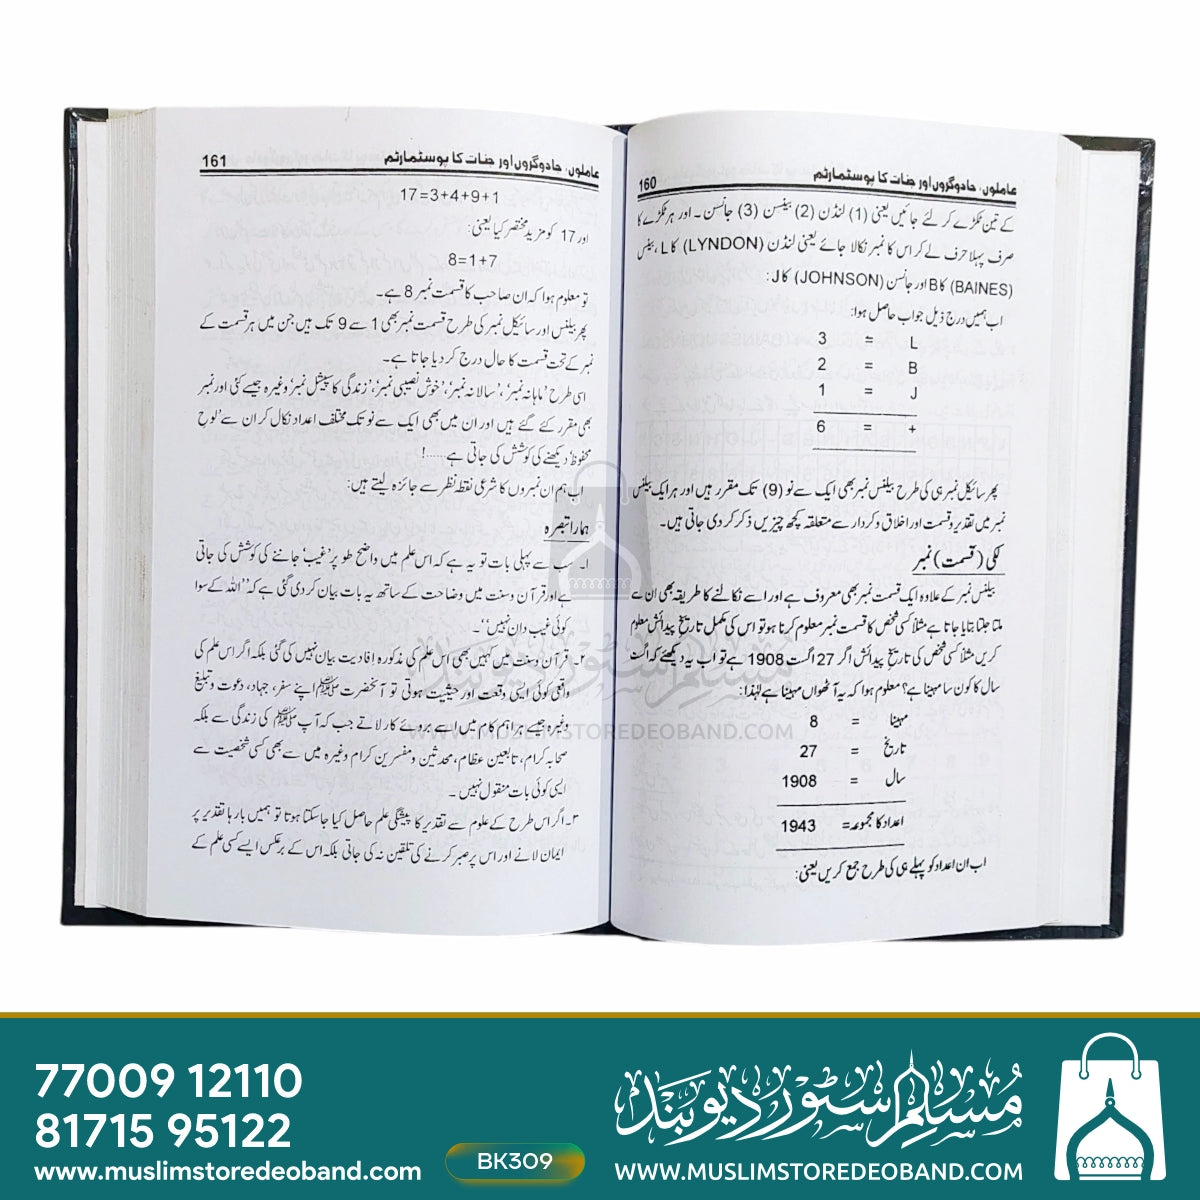 عاملوں، جادوگروں اور جنات کا پوسٹمارٹم 160
کے تین ٹکڑے کر لئے جائیں یعنی (1) لنڈن (2) بینسن (3) جانسن۔ اور ہر ٹکڑے کا
صرف پہلا حرف لے کر اس کا نمبر نکالا جائے یعنی لنڈن (LYNDON) کا L، بینس
(BAINES) کا B اور جانسن (JOHNSON) کا J:
اب ہمیں درج ذیل جواب حاصل ہوا:
L = 3
B = 2
J = 1
+ = 6
پھر سائیکل نمبر ہی کی طرح بیلنس نمبر بھی ایک سے نو (9) تک مقرر ہیں اور ہر ایک بیلنس
نمبر میں تقدیر و قسمت اور اخلاق و کردار سے متعلقہ کچھ چیزیں ذکر کر دی جاتی ہیں۔
لکی (قسمت) نمبر
بیلنس نمبر کے علاوہ ایک قسمت نمبر بھی معروف ہے اور اسے نکالنے کا طریقہ بھی ان سے
ملتا جلتا بتایا جاتا ہے مثلاً کسی شخص کا قسمت نمبر معلوم کرنا ہو تو اس کی مکمل تاریخ پیدائش معلوم
کریں مثلاً کسی شخص کی تاریخ پیدائش اگر 27 اگست 1908 ہے تو اب یہ دیکھئے کہ اگست
سال کا کون سا مہینا ہے؟ معلوم ہوا کہ یہ آٹھواں مہینا ہے لہٰذا:
مہینا = 8
تاریخ = 27
سال = 1908
اعداد کا مجموعہ = 1943
اب ان اعداد کو پہلے ہی کی طرح جمع کریں یعنی:
عاملوں، جادوگروں اور جنات کا پوسٹمارٹم 161
17=3+4+9+1
اور 17 کو مزید مختصر کیا یعنی:
8=1+7
تو معلوم ہوا کہ ان صاحب کا قسمت نمبر 8 ہے۔
پھر بیلنس اور سائیکل نمبر کی طرح قسمت نمبر بھی 1 سے 9 تک ہیں جن میں ہر قسمت کے
نمبر کے تحت قسمت کا حال درج کر دیا جاتا ہے۔
اسی طرح 'ماہانہ نمبر'، 'سالانہ نمبر'، 'خوش نصیبی نمبر'، 'زندگی کا سپیشل نمبر' وغیرہ جیسے کئی اور نمبر
بھی مقرر کئے گئے ہیں اور ان میں بھی ایک سے نو تک مختلف اعداد نکال کر ان سے 'لوح
محفوظ' دیکھنے کی کوشش کی جاتی ہے.....!
اب ہم ان نمبروں کا شرعی نقطۂ نظر سے جائزہ لیتے ہیں:
ہمارا تبصرہ
۱۔ سب سے پہلی بات تو یہ ہے کہ اس علم میں واضح طور پر 'غیب' جاننے کی کوشش کی جاتی
ہے اور قرآن و سنت میں وضاحت کے ساتھ یہ بات بیان کر دی گئی ہے کہ "اللہ کے سوا
کوئی غیب دان نہیں"۔
۲۔ قرآن و سنت میں کہیں بھی اس علم کی مذکورہ افادیت بیان نہیں کی گئی بلکہ اگر اس علم کی
واقعی کوئی ایسی وقعت اور حیثیت ہوتی تو آنحضرت ﷺ اپنے سفر، جہاد، دعوت و تبلیغ
وغیرہ جیسے ہر اہم کام میں اسے بروئے کار لاتے جب کہ آپ ﷺ کی زندگی سے بلکہ
صحابہ کرام، تابعین عظام، محدثین و مفسرین کرام وغیرہ میں سے بھی کسی شخصیت سے
ایسی کوئی بات منقول نہیں۔
۳۔ اگر اس طرح کے علوم سے تقدیر کا پیشگی علم حاصل کیا جا سکتا ہوتا تو ہمیں بارہا تقدیر پر
ایمان لانے اور اس پر صبر کرنے کی تلقین نہ کی جاتی بلکہ اس کے برعکس ایسے کسی علم کے
مسلم سٹور دیوبند
WWW.MUSLIMSTOREDEOBAND.COM
77009 12110
81715 95122
www.muslimstoredeoband.com
BK309
مسلم سٹور دیوبند
WWW.MUSLIMSTOREDEOBAND.COM